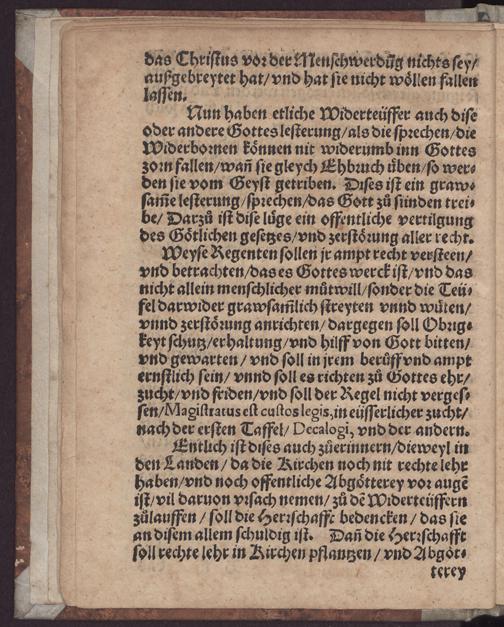 das Christus vor der Menschwerdūg nichts sey/
außgebreytet hat/ vnd hat sie nicht wöllen fallen
lassen.
Nun haben etliche Widerteüffer auch dise
oder andere Gottes lesterung/ als die sprechen/ die
Widerbornen können nit widerumb inn Gottes
zorn fallen/ wañ sie gleych Ehbruch üben/ so wer⸗
den sie vom Geyst getriben. Dises ist ein graw⸗
sam̄e lesterung/ sprechen/ das Gott zů sünden trei⸗
be/ Darzů ist dise lüge ein offentliche vertilgung
des Götlichen gesetzes/ vnd zerstörung aller recht.
Weyse Regenten sollen jr ampt recht versteen/
vnd betrachten/ das es Gottes werck ist/ vnd das
nicht allein menschlicher můtwill/ sonder die Teü⸗
fel darwider grawsam̄lich streyten vnnd wüten/
vnnd zerstörung anrichten/ dargegen soll Obrig⸗
keyt schutz/ erhaltung/ vnd hilff von Gott bitten/
vnd gewarten / vnd soll in jrem berůff vnd ampt
ernstlich sein/ vnnd soll es richten zů Gottes ehr/
zucht/ vnd friden/ vnd soll der Regel nicht verges⸗
sen/ Magistratus est custos legis, in eüsserlicher zucht/
nach der ersten Taffel/ Decalogi, vnd der andern.
Entlich ist dises auch zůerinnern/ dieweyl in
den Landen/ da die Kirchen noch nit rechte lehr
haben/ vnd noch offentliche Abgötterey vor augē
ist/ vil daruon vrsach nemen/ zů dē Widerteüffern
zůlauffen / soll die Herrschafft bedencken / das sie
an disem allem schuldig ist. Dañ die Herrschafft
soll rechte lehr in Kirchen pflantzen / vnd Abgöt⸗
terey